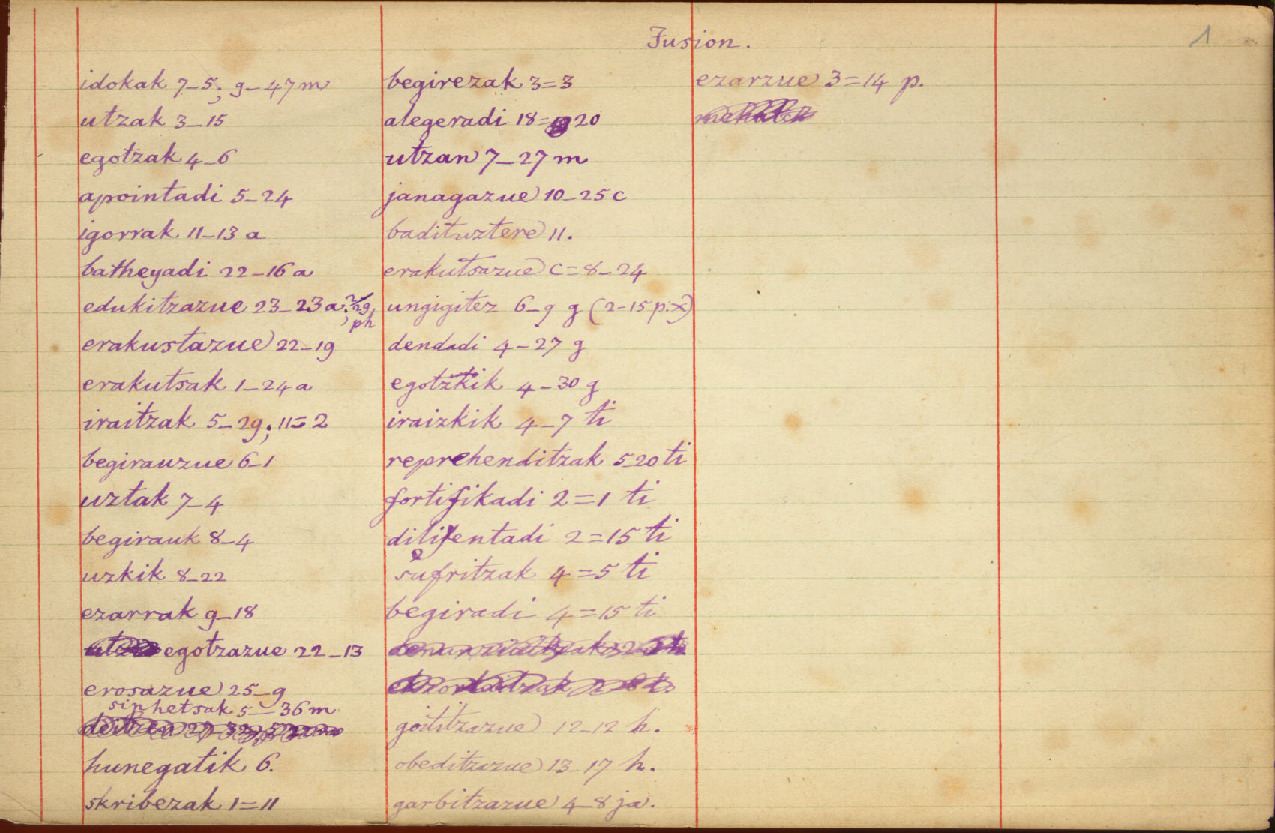 Fusion.
1
idokak 7-5; 9-47 m
utzak 3-15
egotzak 4-6
apointadi 5-24
igorrak 11-13 a
batheyadi 22-16 a
edukitzazue 23-23 a;
ph
erakustazue 22-19
erakutsak 1-24 a
iraitzak 5-29; 11=2
begirauzue 6-1
uztak 7-4
begirauk 8-4
uzkik 8-22
ezarrak 9-18
egotzazue 22-13
erosazue 25-9
sinhetsak 5=36 m
hunegatik 6.
skribezak 1=11
begirezak 3=3
alegeradi 18=20
utzan 7-27 m
janagazue 10-25 c
badituztere 11.
erakutsazue c=8-24
ungigitez 6-9 g (2-15 p.x)
dendadi 4-27 g
egotzkik 4-30 g
iraizkik 4-7 ti
reprehenditzak 5-20 ti
fortifikadi 2=1 ti
dilijentadi 2=15 ti
sufritzak 4=5 ti
begiradi 4=15 ti
goititzazue 12-12 h.
obeditzazue 13-17 h.
garbitzazue 4-8 ja.
ezarzue 3=14 p.